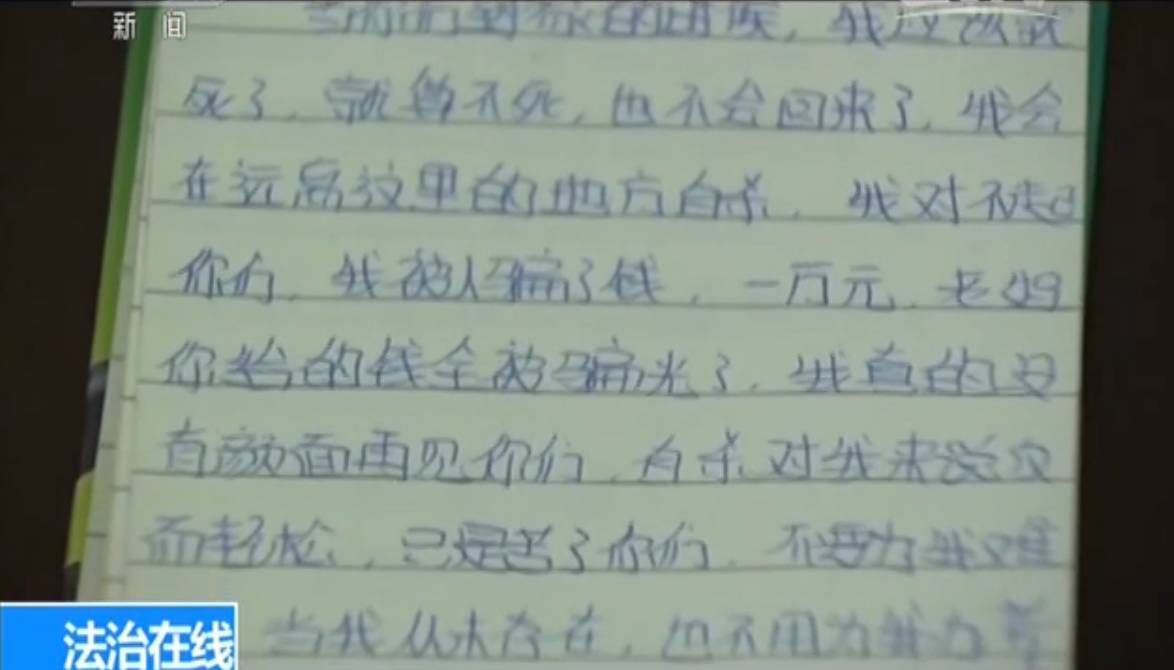 新闻
当你们看到你的时候，我应该就
死了，就算不死，也不会回来了，我会
在远离这里的地方自杀，我对不起
你们，我被人骗了钱，一万元，老妈
你给的钱全被骗光了，我真的没
有颜面再见你们，自杀对我来说反
而轻松，只是苦了你们，不要为我难
当我从未存在，也不用为我办
法治在线